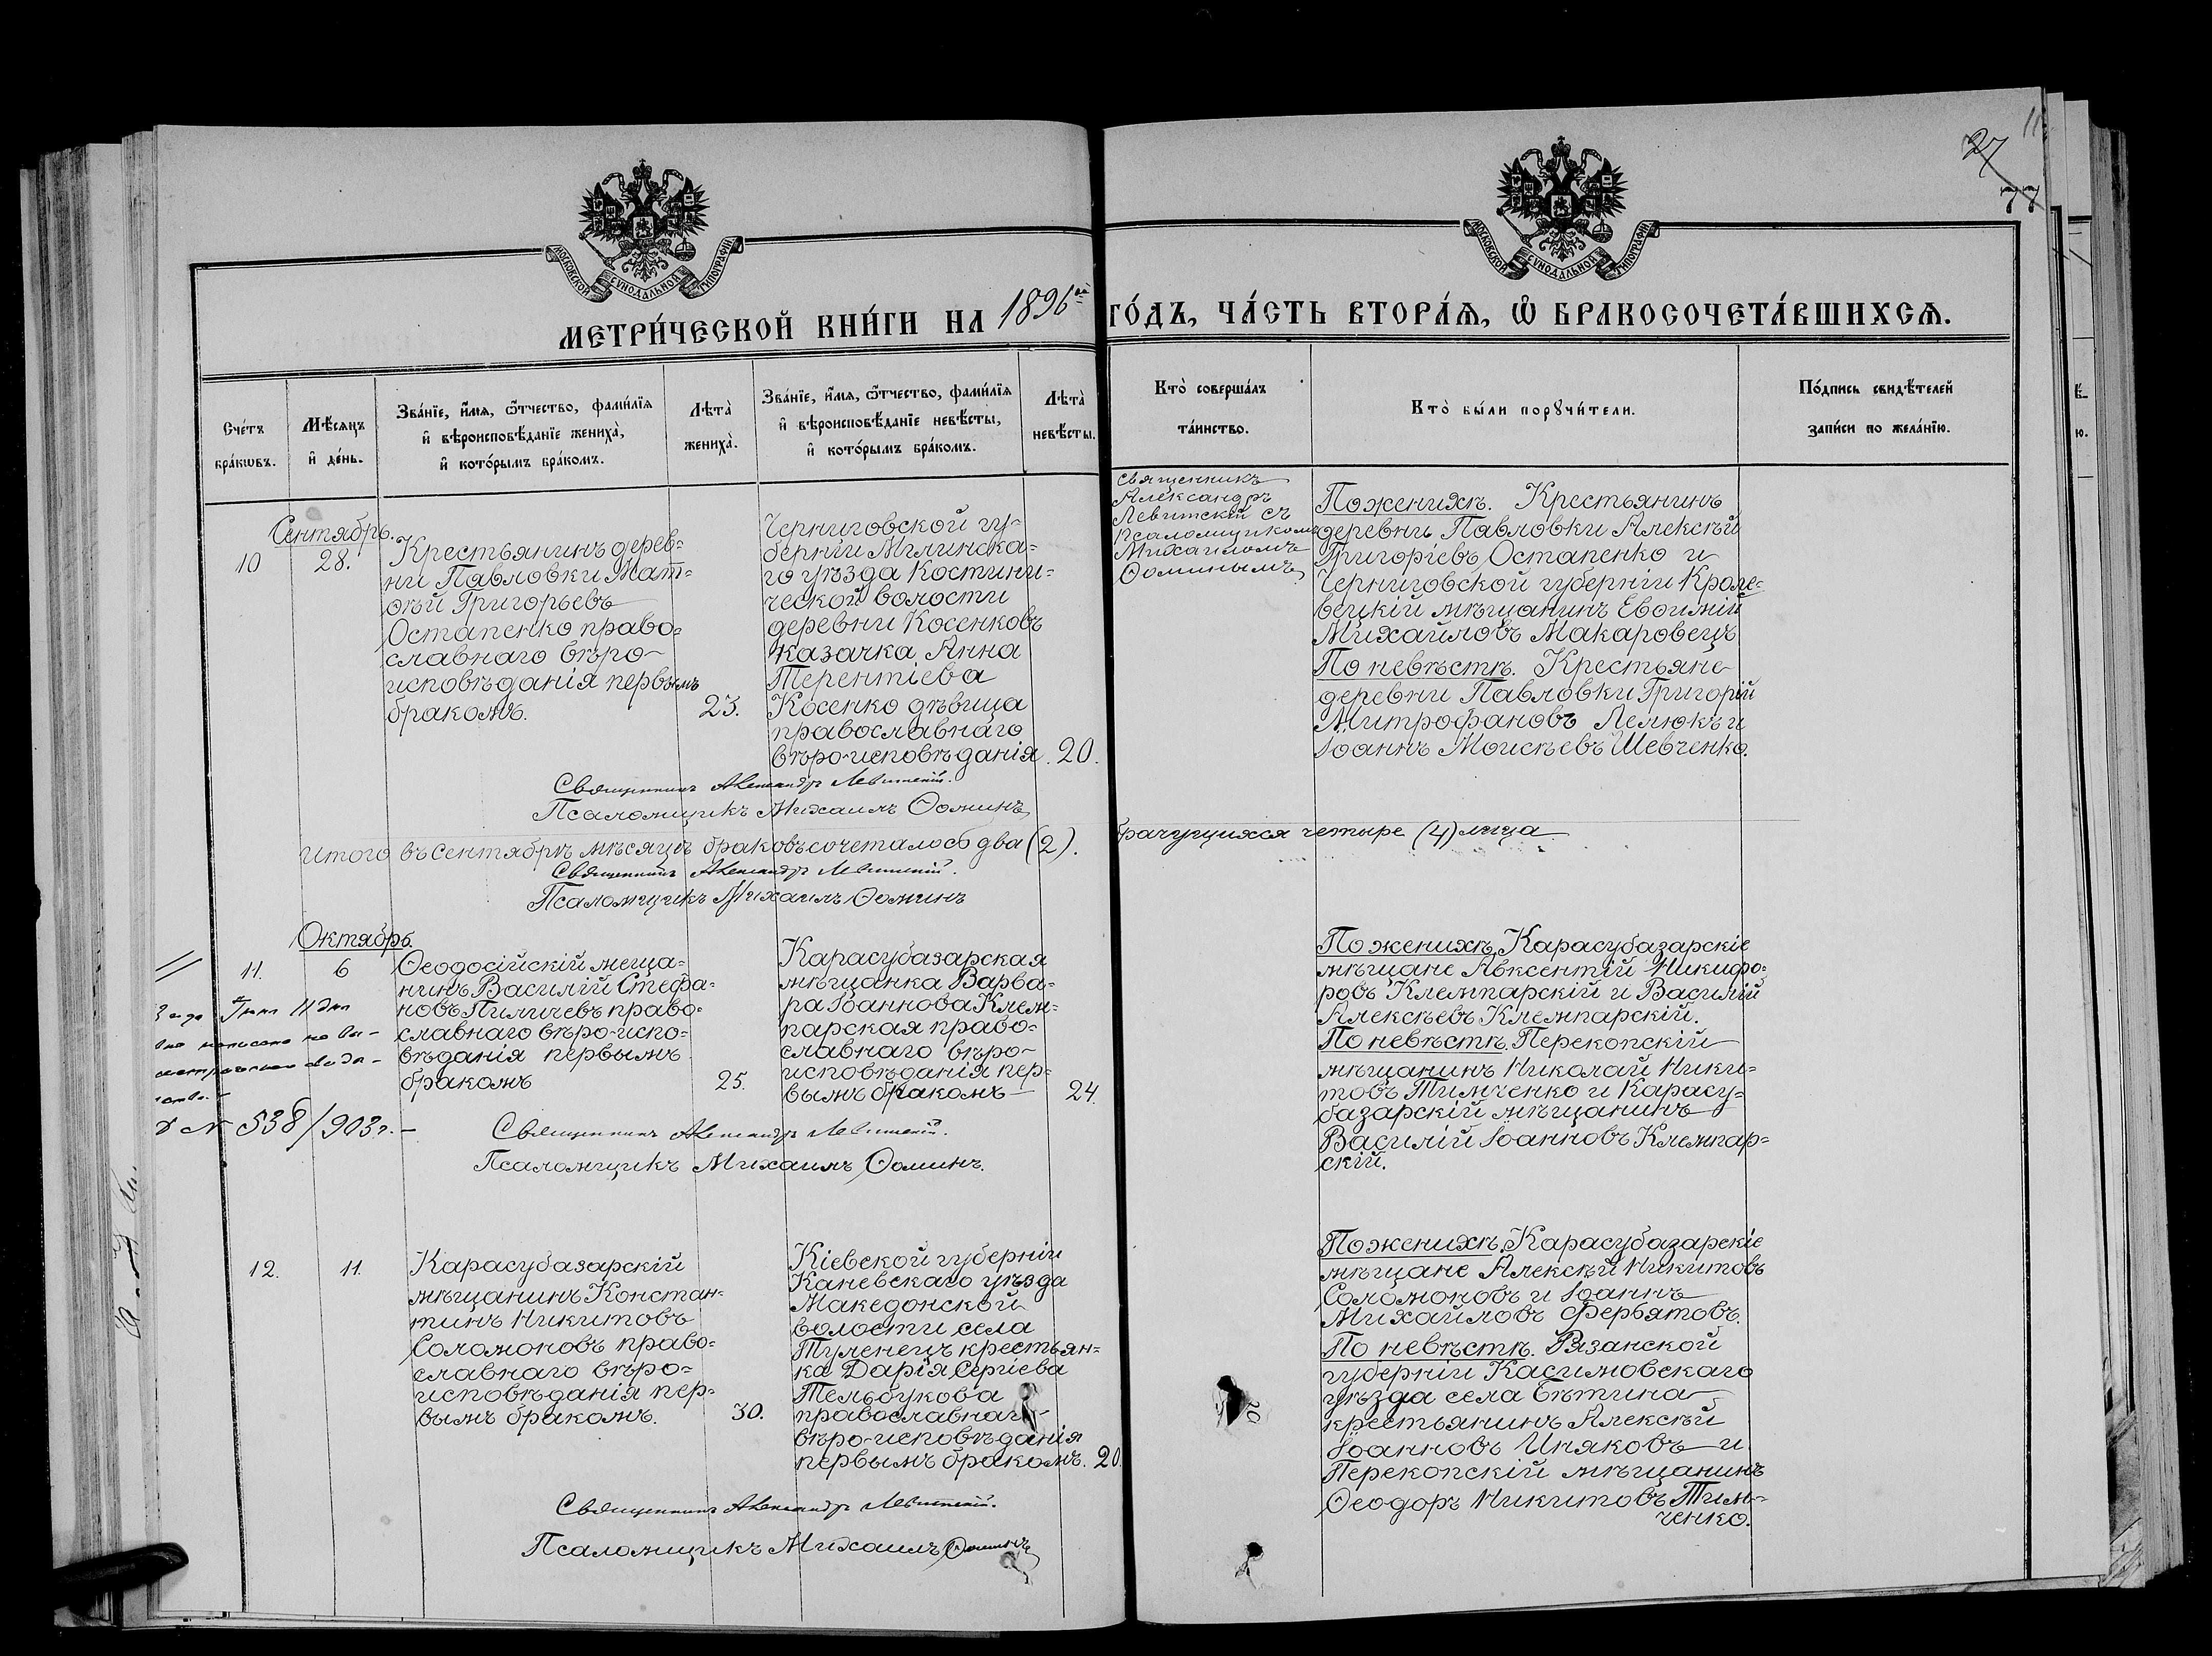 27
77
11
МОСКОВСКОЙ СУНОДАЛЬНОЙ ТИПОГРАФІИ
МОСКОВСКОЙ СУНОДАЛЬНОЙ ТИПОГРАФІИ
МЕТРИ́ЧЕСКОЙ КНИ́ГИ НА 1896ой ГО́ДЪ, ЧА́СТЬ ВТОРА́Ѧ, Ѽ БРАКОСОЧЕТА́ВШИХСѦ.
Сче́тъ
бра́кѡвъ.
Мѣ́сѧцъ
и҆ де́нь.
Зва́нїе, и҆́мѧ, ѻ҆́тчество, фами́лїѧ
и҆ вѣроисповѣ́данїе жениха̀,
и҆ кото́рымъ бра́комъ.
Лѣта̀
жениха̀.
Зва́нїе, и҆́мѧ, ѻ҆́тчество, фами́лїѧ
и҆ вѣроисповѣ́данїе невѣ́сты,
и҆ кото́рымъ бра́комъ.
Лѣта̀
невѣ́сты.
Кто̀ соверша́лъ
та́инство.
Кто̀ бы́ли порꙋчи́тели.
По́дпись свидѣ́телей
за́писи по жела́нїю.
Сентябрь.
10
28.
Крестьянинъ дерев=
ни Павловки Мат=
ѳѣй Григорьевъ
Остапенко право=
славнаго вѣро-
исповѣданія первымъ
бракомъ.
23.
Черниговской гу=
берніи Мглинска=
го уѣзда Костини=
ческой волости
деревни Косенковъ
казачка Анна
Терентіева
Косенко дѣвица
православнаго
вѣро-исповѣданія.
20.
Священникъ
Александръ
Левитскій съ
псаломщикомъ
Михаиломъ
Ѳоминымъ
По женихѣ. Крестьянинъ
деревни Павловки Алексѣй
Григоріевъ Остапенко и
Черниговской губерніи Кроле=
вецкій мѣщанинъ Евѳимій
Михайловъ Макаровецъ
По невѣстѣ. Крестьяне
деревни Павловки Григорій
Митрофановъ Лелюкъ и
Іоаннъ Моисѣевъ Шевченко.
Священникъ Александръ Левитскій.
Псаломщикъ Михаилъ Ѳоминъ
Итого въ Сентябрѣ мѣсяцѣ браковъ сочеталось два (2). брачущихся четыре (4) лица
Священникъ Александръ Левитскій.
Псаломщикъ Михаилъ Ѳоминъ
Октябрь.
11.
6
Ѳеодосійскій меща=
нинъ Василій Стефа=
новъ Пиличевъ право=
славнаго вѣро-испо=
вѣданія первымъ
бракомъ
25.
Карасубазарская
мѣщанка Варва=
ра Іоаннова Клем=
парская право=
славнаго вѣро-
исповѣданія пер=
вымъ бракомъ
24.
По женихѣ, Карасубазарскіе
мѣщане Авксентій Никифо=
ровъ Клемпарскій и Василій
Алексѣевъ Клемпарскій.
По невѣстѣ. Перекопскій
мѣщанинъ Николай Ники=
товъ Тимченко и Карасу=
базарскій мѣщанинъ
Василій Іоанновъ Клемпар=
скій.
11 дня
№ 538/903 г.
Священникъ Александръ Левитскій.
Псаломщикъ Михаилъ Ѳоминъ.
12.
11.
Карасубазарскій
мѣщанинъ Констан=
тинъ Никитовъ
Соломоновъ право=
славнаго вѣро=
исповѣданія пер=
вымъ бракомъ.
30.
Кіевской губерніи
Каневскаго уѣзда
Македонской
волости села
Тулепецъ крестьян=
ка Дарія Сергіева
Тельбукова
православнаго
вѣро-исповѣданія
первымъ бракомъ.
20.
По женихѣ, Карасубазарскіе
мѣщане Алексѣй Никитовъ
Соломоновъ и Іоаннъ
Михайловъ Фербятовъ.
По невѣстѣ. Рязанской
губерніи Касимовскаго
уѣзда села Бѣтина
крестьянинъ Алексѣй
Іоанновъ Иняковъ и
Перекопскій мѣщанинъ
Ѳеодоръ Никитовъ Тим=
ченко.
Священникъ Александръ Левитскій.
Псаломщикъ Михаилъ Ѳоминъ